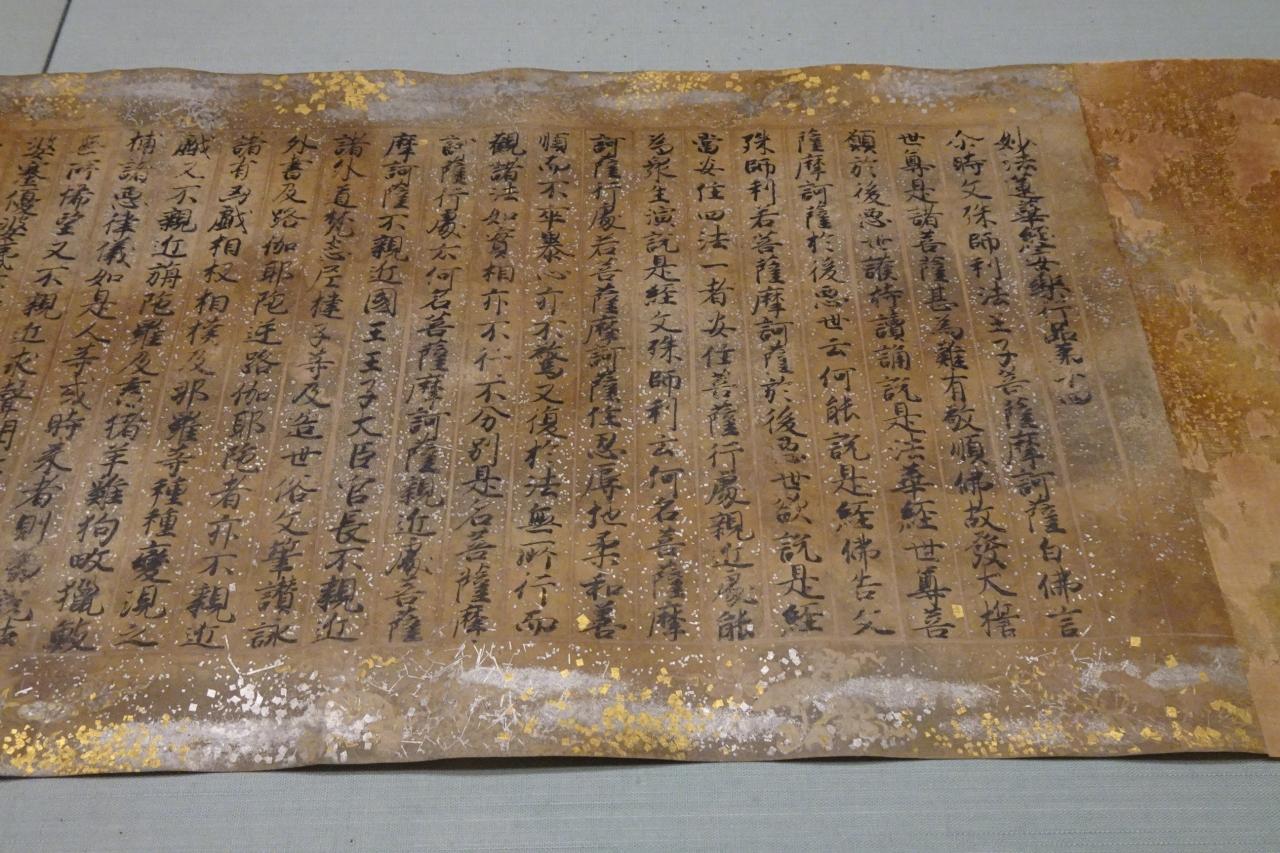 妙法蓮華經安樂行品第十四
尒時文殊師利法王子菩薩摩訶薩白佛言
世尊是諸菩薩甚為難有敬順佛故發大擔
願於後惡世護持讀誦說是法華經世尊菩
薩摩訶薩於後惡世云何能說是經佛告文
殊師利若菩薩摩訶薩於後惡世欲說是經
當安住四法一者安住菩薩行處親近處能
為衆生演說是經文殊師利云何名菩薩摩
訶薩行處若菩薩摩訶薩住忍辱地柔和善
順而不卒暴心亦不驚又復於法無所行而
觀諸法如實相亦不行不分別是名菩薩摩
訶薩行處云何名菩薩摩訶薩親近處菩薩
摩訶薩不親近國王王子大臣官長不親近
諸外道梵志尼揵子等及造世俗文筆讃詠
外書及路伽耶陀逆路伽耶陀者亦不親近
諸有凶戲相扠相撲及那羅等種種變現之
戲又不親近旃陀羅及畜猪羊雞狗畋獵敏
捕諸惡律儀如是人等或時来者則
無所悕望又不親近求聲聞
婆塞優婆